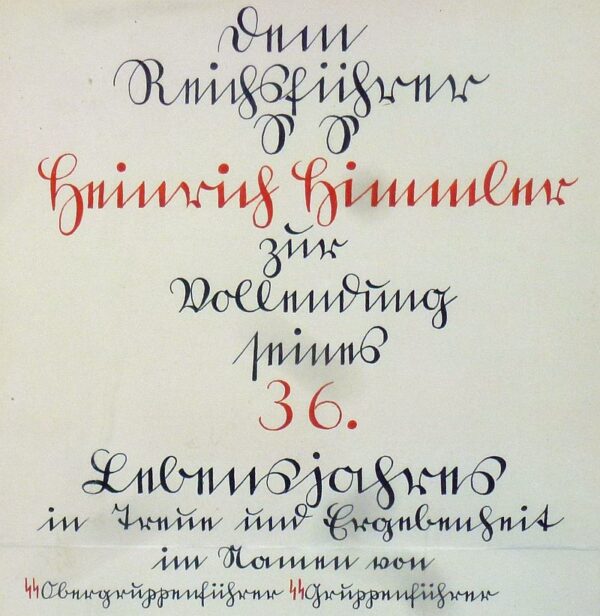 Dem
Reichsführer
S S
Heinrich Himmler
zur
Vollendung
seines
36.
Lebensjahres
in Treue und Ergebenheit
im Namen von
SS Obergruppenführer SS Gruppenführer